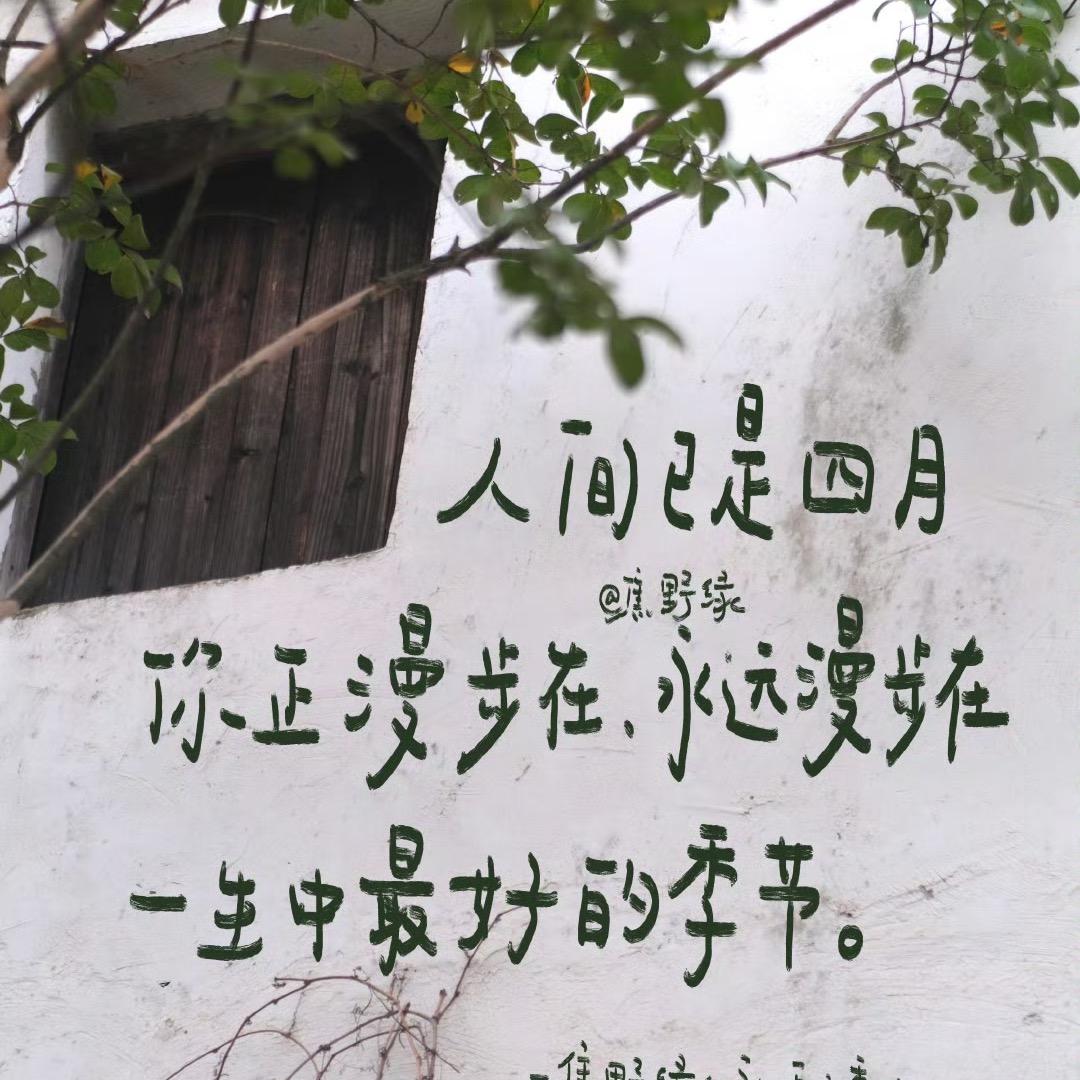 人间已是四月
@焦野绿
你正漫步在、永远漫步在
一生中最好的季节。